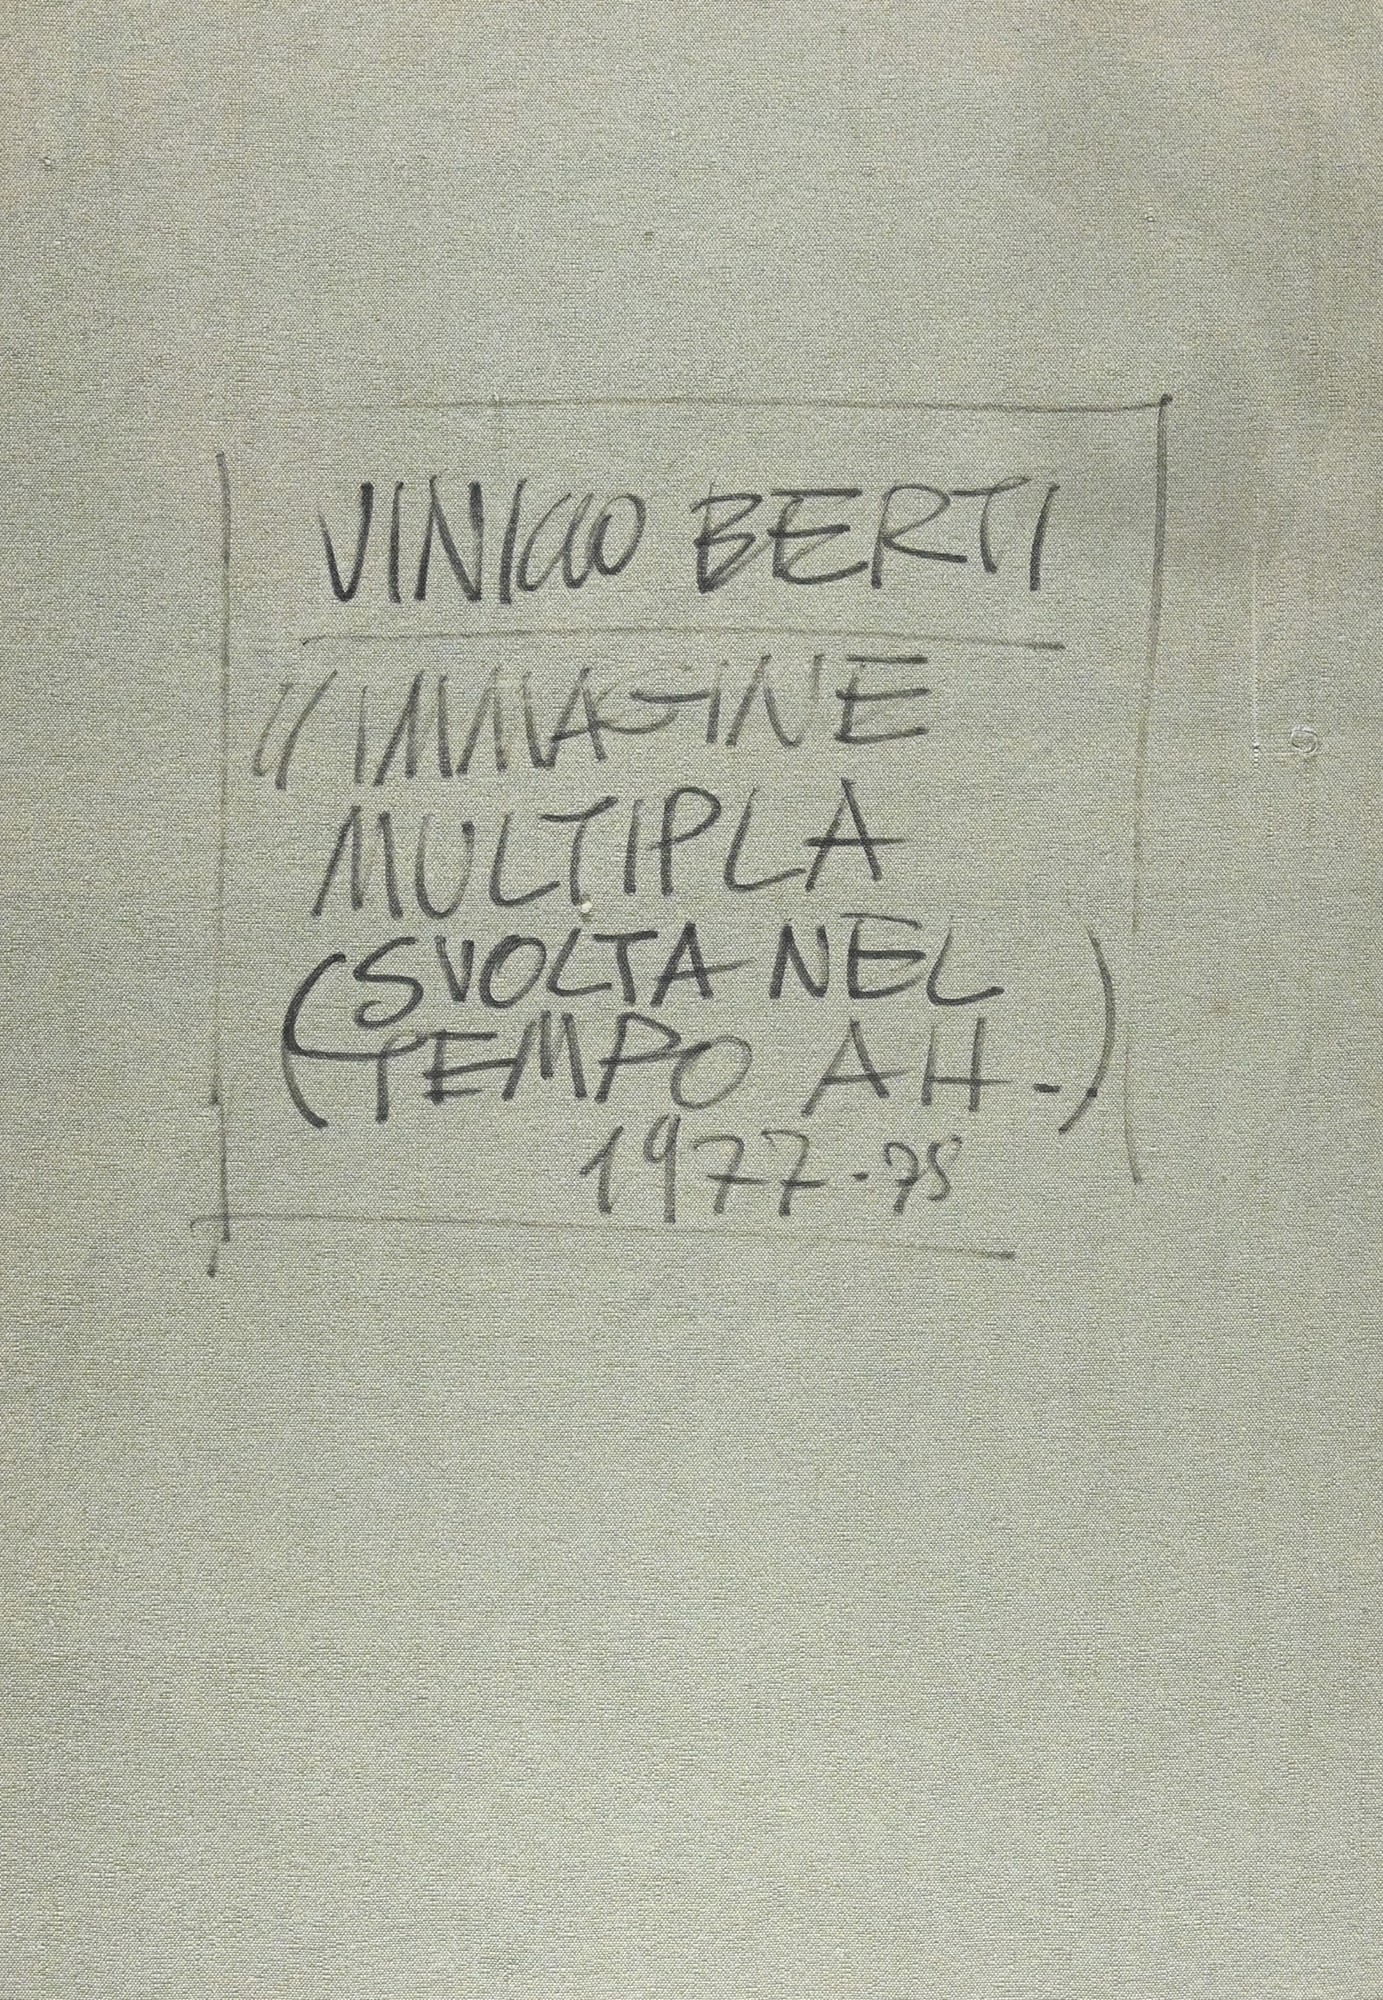 VINICIO BERTI
"IMMAGINE
MULTIPLA
(SVOLTA NEL
TEMPO AH-)
1977-78